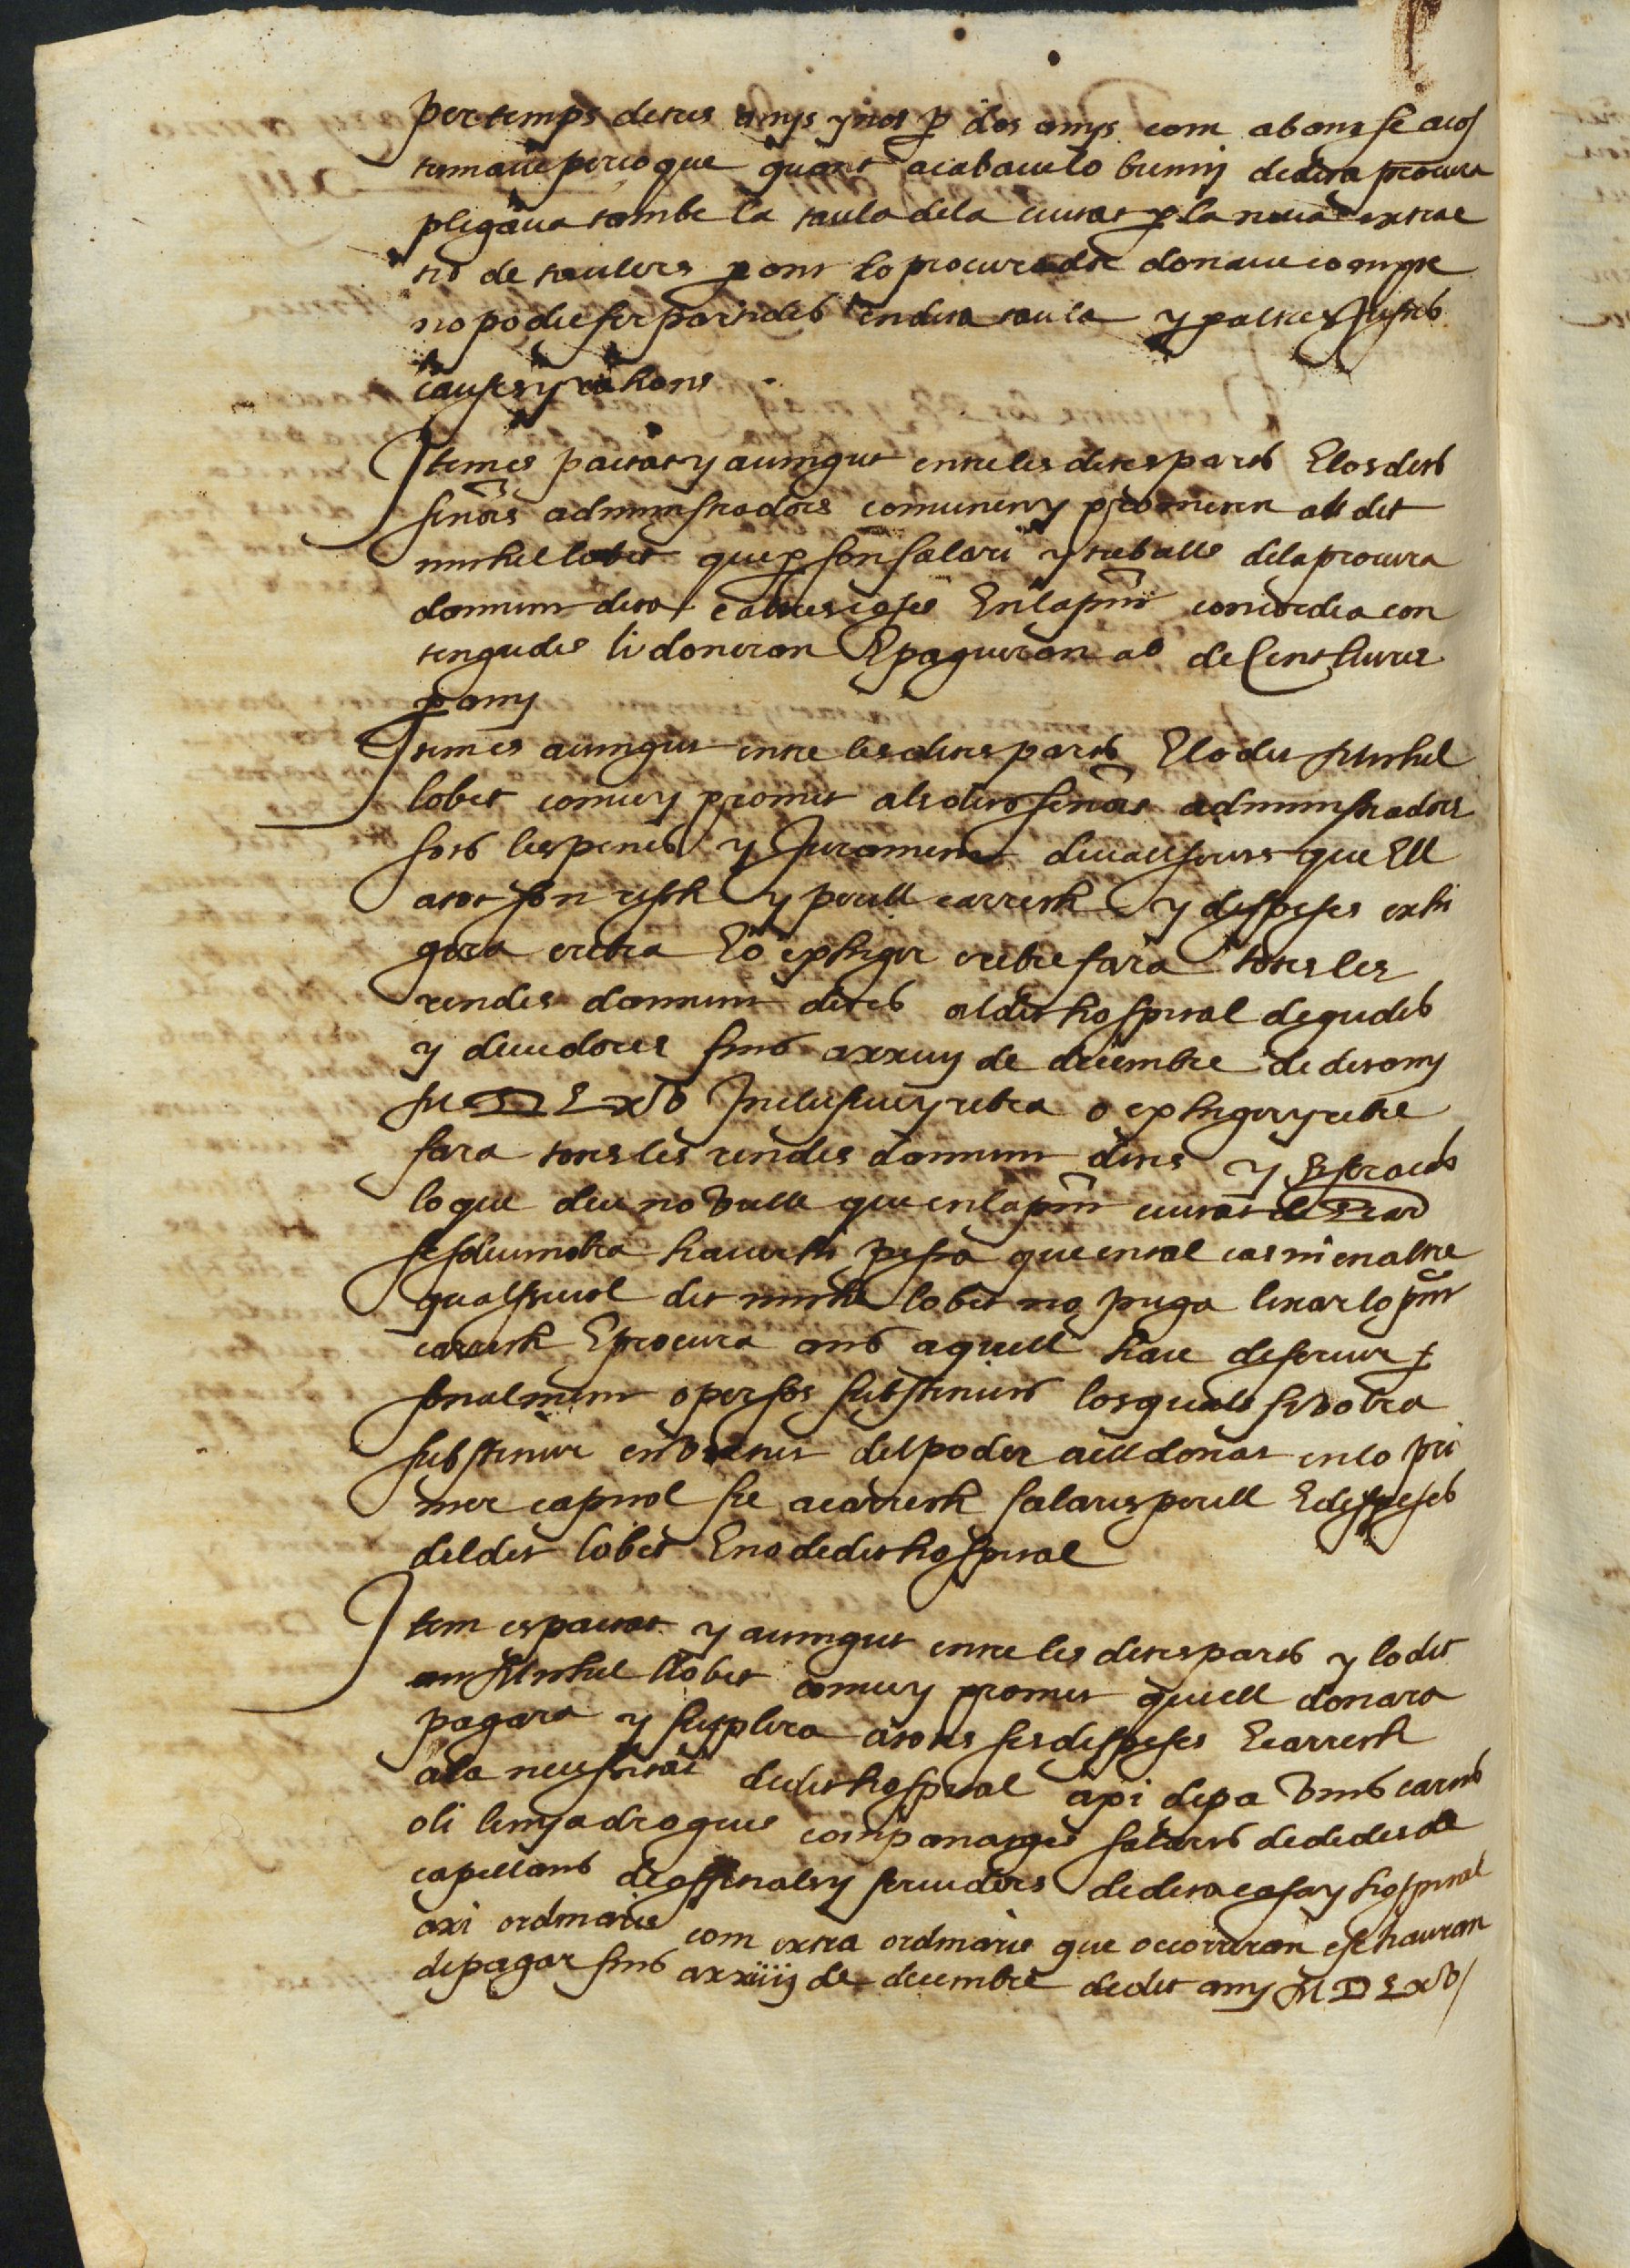 per temps de tres anys y nos p dos anys com abans se acos
tumaue perço que quant acabaue lo trienni de dita procura
plegaua tambe la taula de la ciutat p la noua extrac
tio de taulers p ont lo procurador donaue compte
no podie fer partides en dita taula y p altres justes
causes y rahons
Item es pactat y auingut entre les dites parts E los dits
senors administradors conuenen y prometen al dit
michel lobet que p son salari y treballs de la procura
damunt dita E altres coses En la pnt concordia con
tengudes li donaran E pagueran a de Cent liures
p any
Item es auingut entre les dites parts E lo dit Michel
lobet conue y promet als dits senors administradors
sots les penes y Jurament deuall scrits que Ell
a tot son risch y perill carrech y despeses exhi
gira e rebra E o exhigir e rebre fara totes les
rendes damunt dites al dit hospital degudes
y deuedores fins a xxiiij de deembre de dit any
M D L x V Inclusiue y rebra o exhigir y rebre
fara totes les rendes damunt dites y Exceptats
lo que deu no vulle que en la pnt ciutat
se sdeumetra hauer hi pesta que en tal cas ni en altre
qualseuol dit michel lobet no puga lexar lo pnt
carrech E procura ans aquell haie de seruir p
sonalment o per sos substituts los quals si volra
substituir en virtut del poder a ell donat en lo pri
mer capitol sie a carrech salaris perill E despeses
del dit lobet E no de dit hospital
Item es pactat y auingut entre les dites parts y lo dit
en Michel llobet conue y promet que ell donara
pagara y suplira a totes ses despeses E carrech
a la necessitat de dit hospital axi de pa vins carns
oli lenya drogues companatges salaris de dides de
capellans de officials y seruidors de dita casa y hospital
axi ordinaries com extra ordinaries que occorreran e se hauran
de pagar fins a xxiiij de deembre de dit any M D L x V